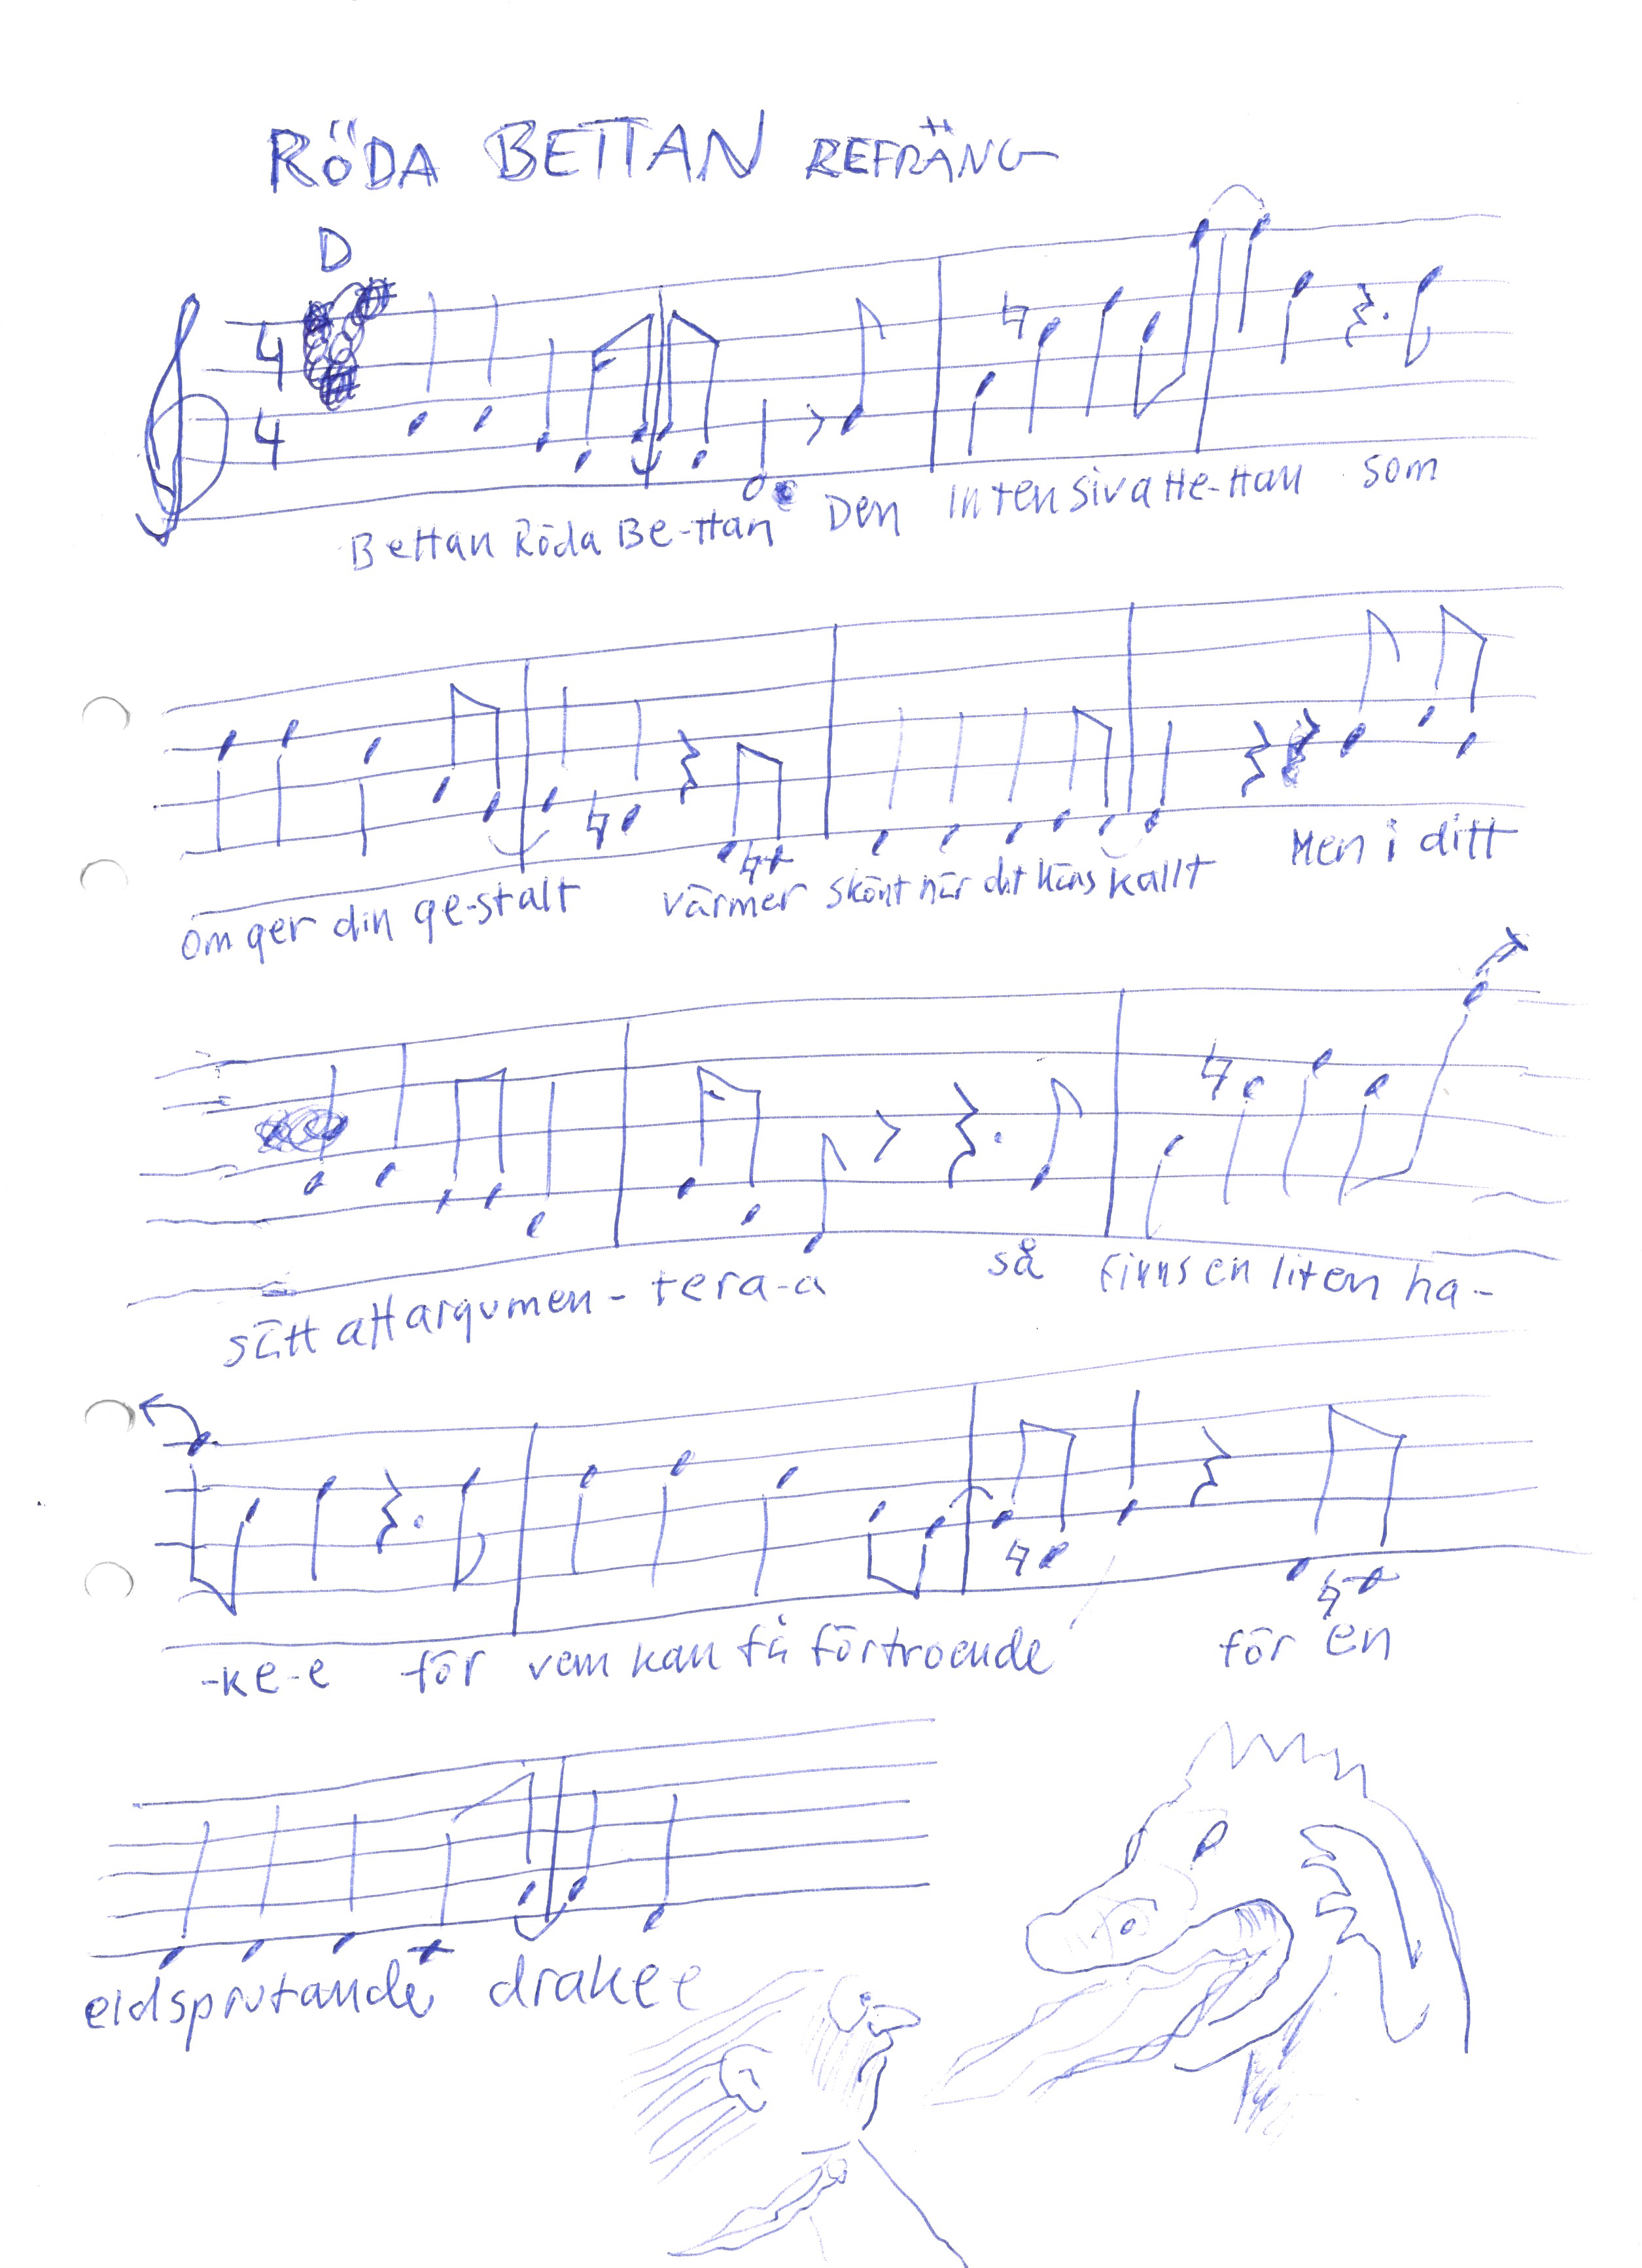 RÖDA BETTAN REFRÄNG
D
4
4
Bettan Röda Be-ttan Den intensiva He-ttan som
omger din ge-stalt värmer skönt när det käns kallt Men i ditt
sätt att argumen-tera-a så finns en liten ha-
-ke-e för vem kan få förtroende för en
eldsprutande drakee